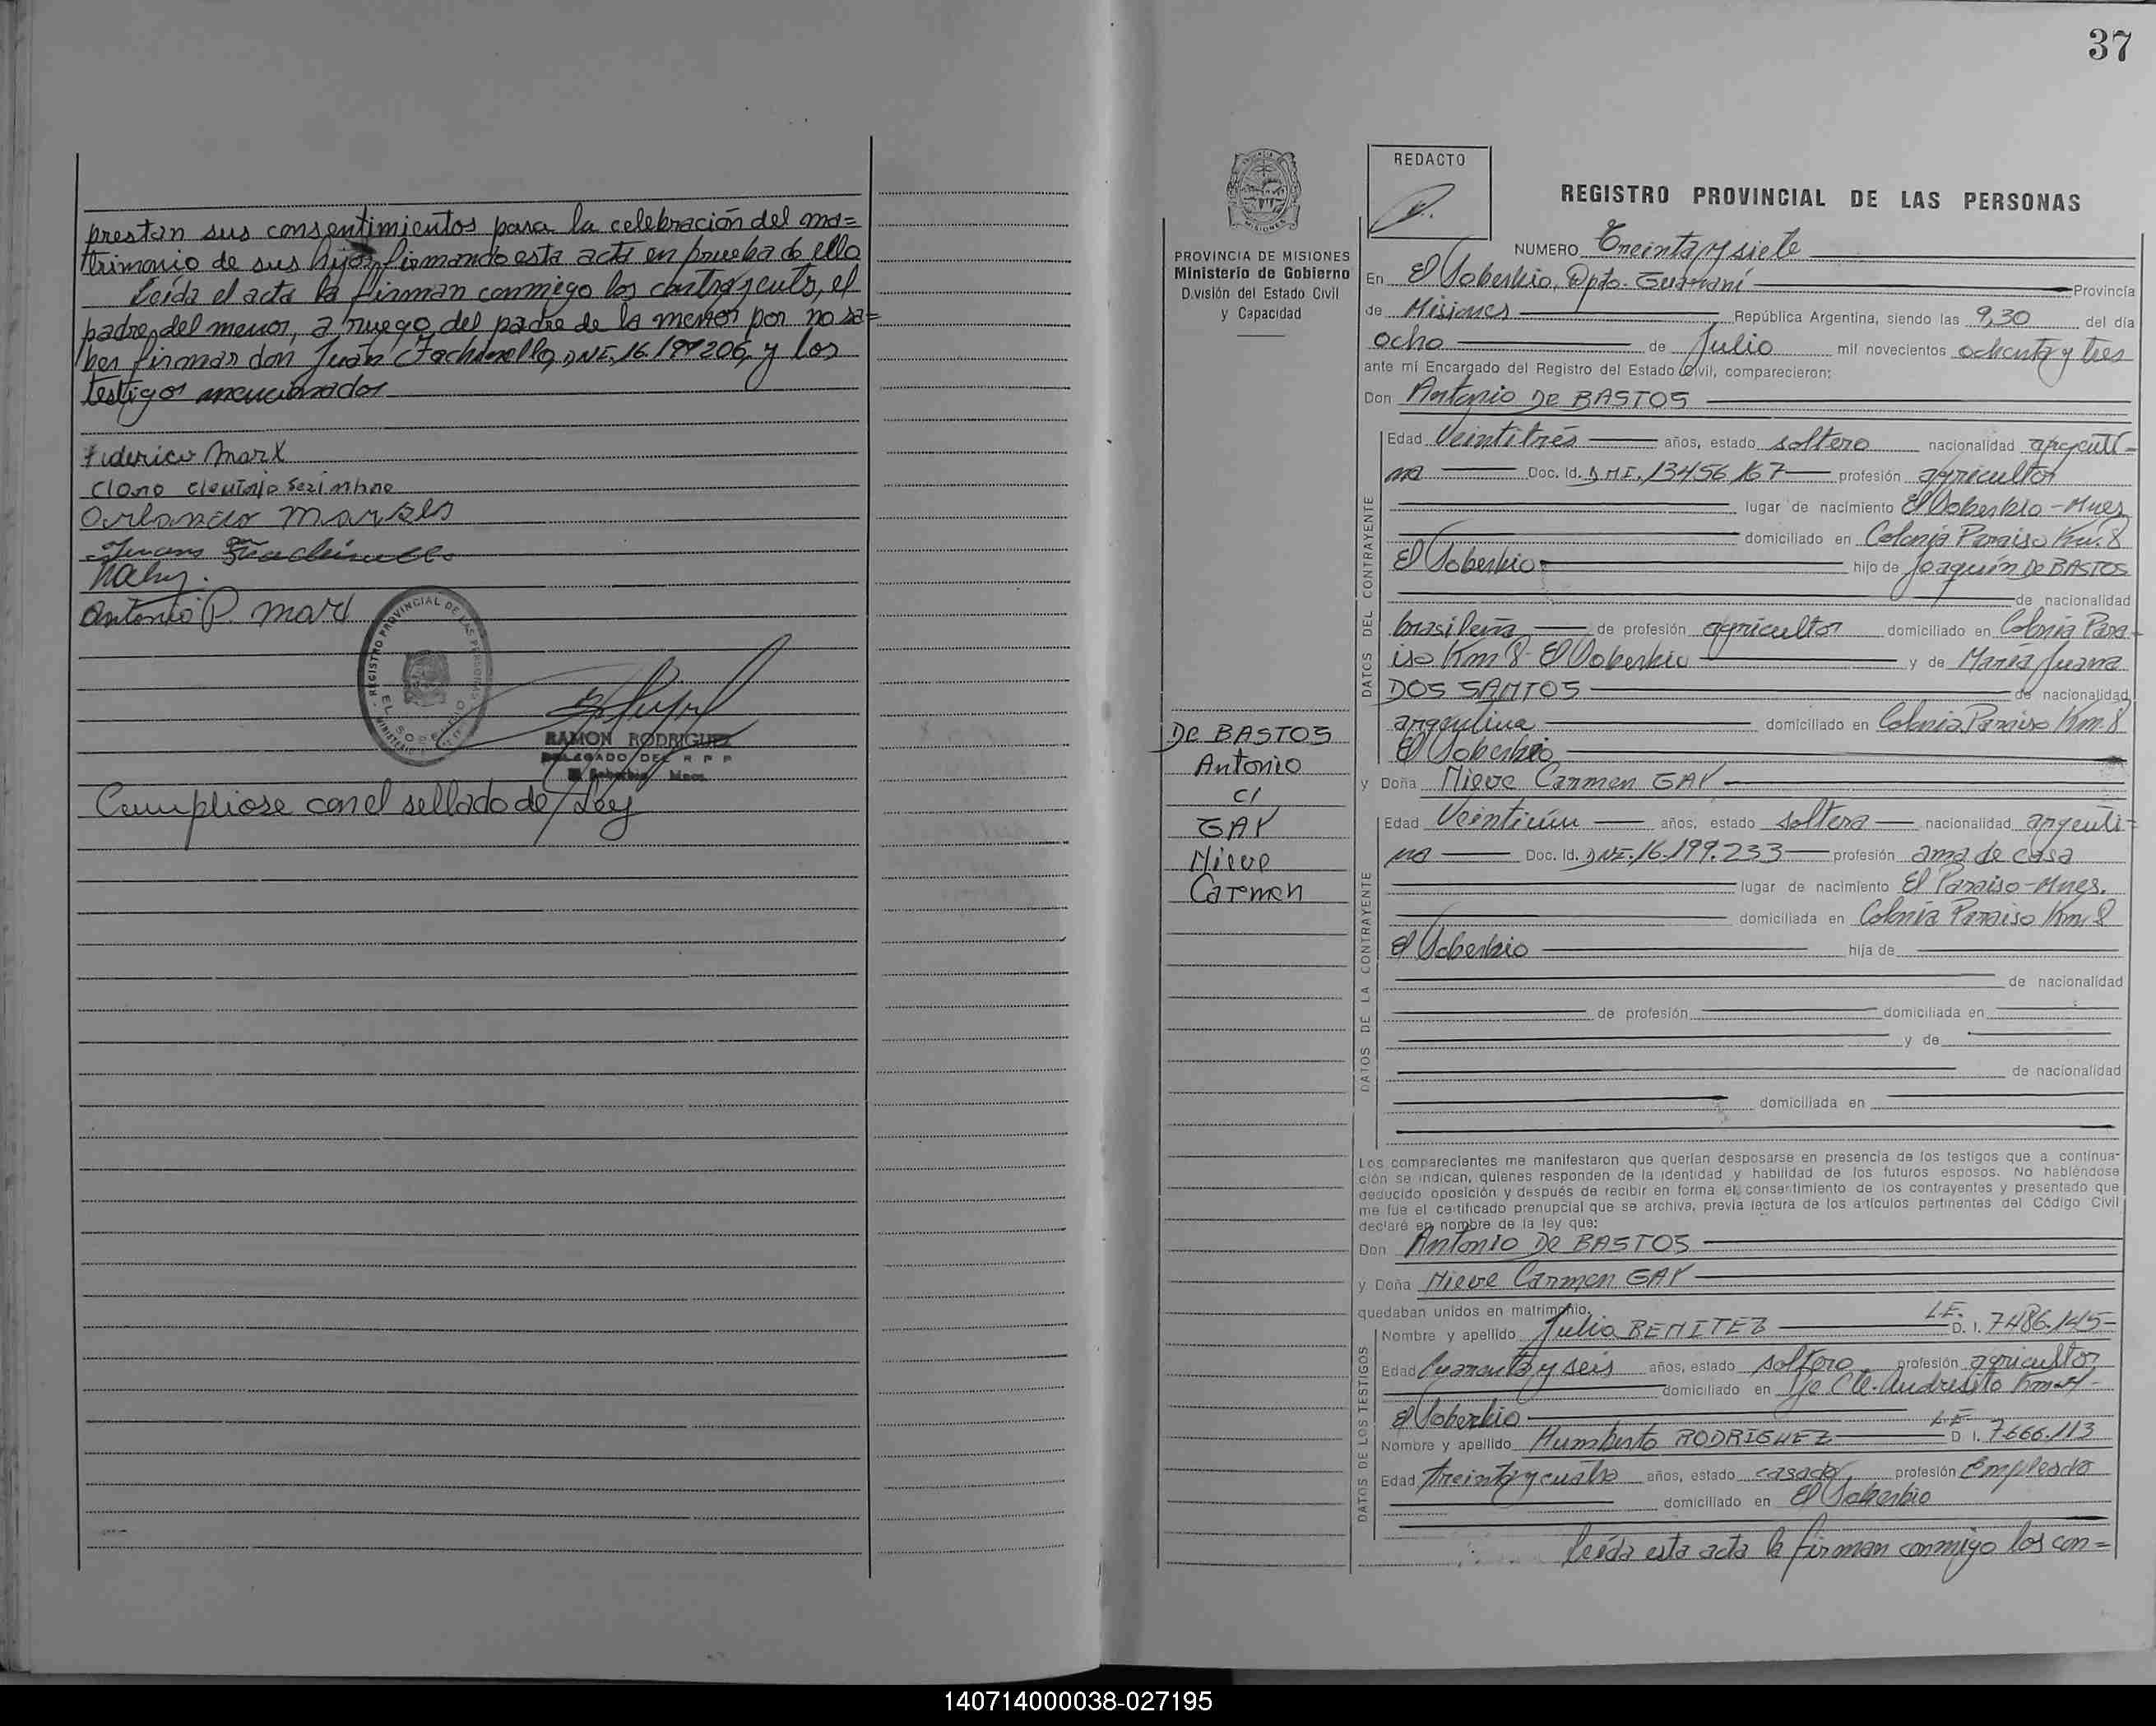 prestan sus consentimientos para la celebración del ma=
trimonio de sus hijos, firmando esta acta en prueba de ello
Leída el acta la firman conmigo los contrayentes, el
padre del menor, a ruego del padre de la menor por no sa=
ber firmar don Juan Fachinello, DNI. 16.199206, y los
testigos mencionados
Federico Marx
Orlando Marx
Antonio P. Marx
REGISTRO PROVINCIAL DE LAS PERSONAS
EL SOBERBIO
RAMON RODRIGUEZ
DELEGADO DEL R P P
El Soberbio Mnes.
Cumpliose con el sellado de Ley
37
PROVINCIA DE MISIONES
Ministerio de Gobierno
División del Estado Civil
y Capacidad
DE BASTOS
Antonio
c/
GAY
Nieve
Carmen
REDACTO
REGISTRO PROVINCIAL DE LAS PERSONAS
NUMERO Treinta y siete
En El Soberbio, Dpto. Guaraní Provincia
de Misiones República Argentina, siendo las 9,30 del día
ocho de Julio mil novecientos ochenta y tres
ante mí Encargado del Registro del Estado Civil, comparecieron:
Don Antonio DE BASTOS
DATOS DEL CONTRAYENTE
Edad Veintitrés años, estado soltero nacionalidad argenti=
na Doc. Id. D.N.I. 13456167 profesión agricultor
lugar de nacimiento El Soberbio-Mnes
domiciliado en Colonia Paraiso Km. 8
El Soberbio hijo de Joaquín DE BASTOS
de nacionalidad
brasileña de profesión agricultor domiciliado en Colonia Para-
iso Km 8 El Soberbio y de María Juana
DOS SANTOS de nacionalidad
argentina domiciliado en Colonia Paraiso Km. 8
El Soberbio
y Doña Nieve Carmen GAY
DATOS DE LA CONTRAYENTE
Edad Veintiún años, estado soltera nacionalidad argenti=
na Doc. Id. DNI. 16.199.233 profesión ama de casa
lugar de nacimiento El Paraiso-Mnes.
domiciliada en Colonia Paraiso Km. 8
El Soberbio hija de
de nacionalidad
de profesión domiciliada en
y de
de nacionalidad
domiciliada en
Los comparecientes me manifestaron que querían desposarse en presencia de los testigos que a continua-
ción se indican, quienes responden de la identidad y habilidad de los futuros esposos. No habiéndose
deducido oposición y después de recibir en forma el consentimiento de los contrayentes y presentado que
me fue el certificado prenupcial que se archiva, previa lectura de los artículos pertinentes del Código Civil
declaré en nombre de la ley que:
Don Antonio DE BASTOS
y Doña Nieve Carmen GAY
quedaban unidos en matrimonio.
DATOS DE LOS TESTIGOS
Nombre y apellido Julio BENITEZ L.E. D. I. 7486.145-
Edad Cuarenta y seis años, estado soltero profesión agricultor,
domiciliado en Cte. Andresito Km 4-
El Soberbio
Nombre y apellido Humberto RODRIGUEZ L.E. D. I. 7.666.113
Edad treinta y cuatro años, estado casado, profesión Empleado
domiciliado en El Soberbio
leída esta acta la firman conmigo los con=
140714000038-027195